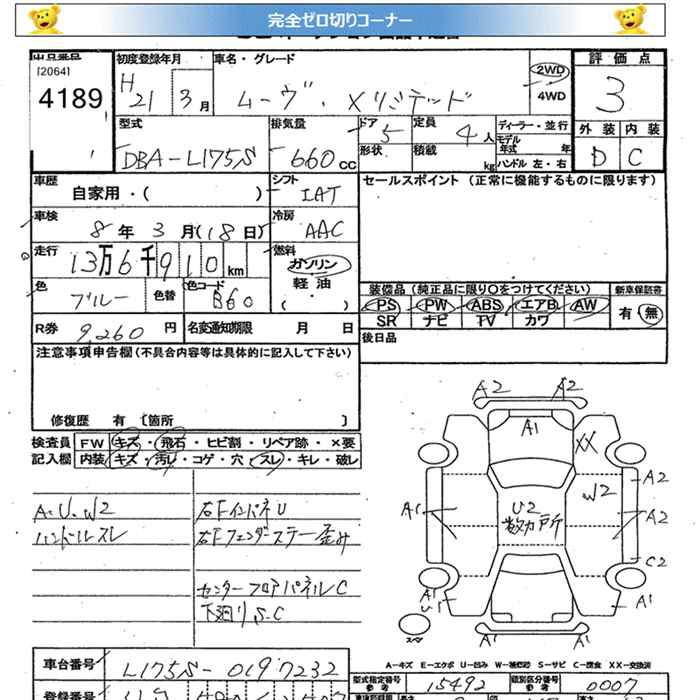 完全ゼロ切りコーナー
出品番号 初度登録年月 車名・グレード 評価点
[2064] H 21 3月 ムーヴ・Xリミテッド 2WD 3
4189 4WD
型式 排気量 ドア 5 定員 4人 ディーラー・並行 外装 内装
DBA-L175S 660CC 形状 積載 kg モデル年式 年 D C
ハンドル 左・右
車歴 シフト セールスポイント (正常に機能するものに限ります)
自家用・( ) IAT
車検 冷房
8年 3月(18日) AAC
走行 燃料
13万6千910km ガソリン
軽油
色 ブルー 色替 色コード B60 ( ・ )
装備品(純正品に限り○をつけてください) 新車保証書
PS PW ABS エアB AW 有・無
SR ナビ TV カワ
R券 9,260円 名変通知期限 月 日
後日品
注意事項申告欄(不具合内容等は具体的に記入して下さい)
修復歴 有 〔箇所 〕
検査員 FW キズ・飛石・ヒビ割・リペア跡・×要
記入欄 内装 キズ・汚レ・コゲ・穴・スレ・キレ・破レ
A.U.W2 右FインパネU
ハンドルスレ 右Fフェンダーステー歪み
センターフロアパネルC
下廻りS.C
A2 A2
A1
XX
W2 A2
A1 U2 A2
数カ所
C2
A1 A1
U1
スペア A1 A1
A-キズ E-エクボ U-凹み W-補修跡 S-サビ C-腐食 XX-交換済
車台番号 L175S-0197232
型式指定番号 参考 15492 類別区分番号 参考 0007
登録番号